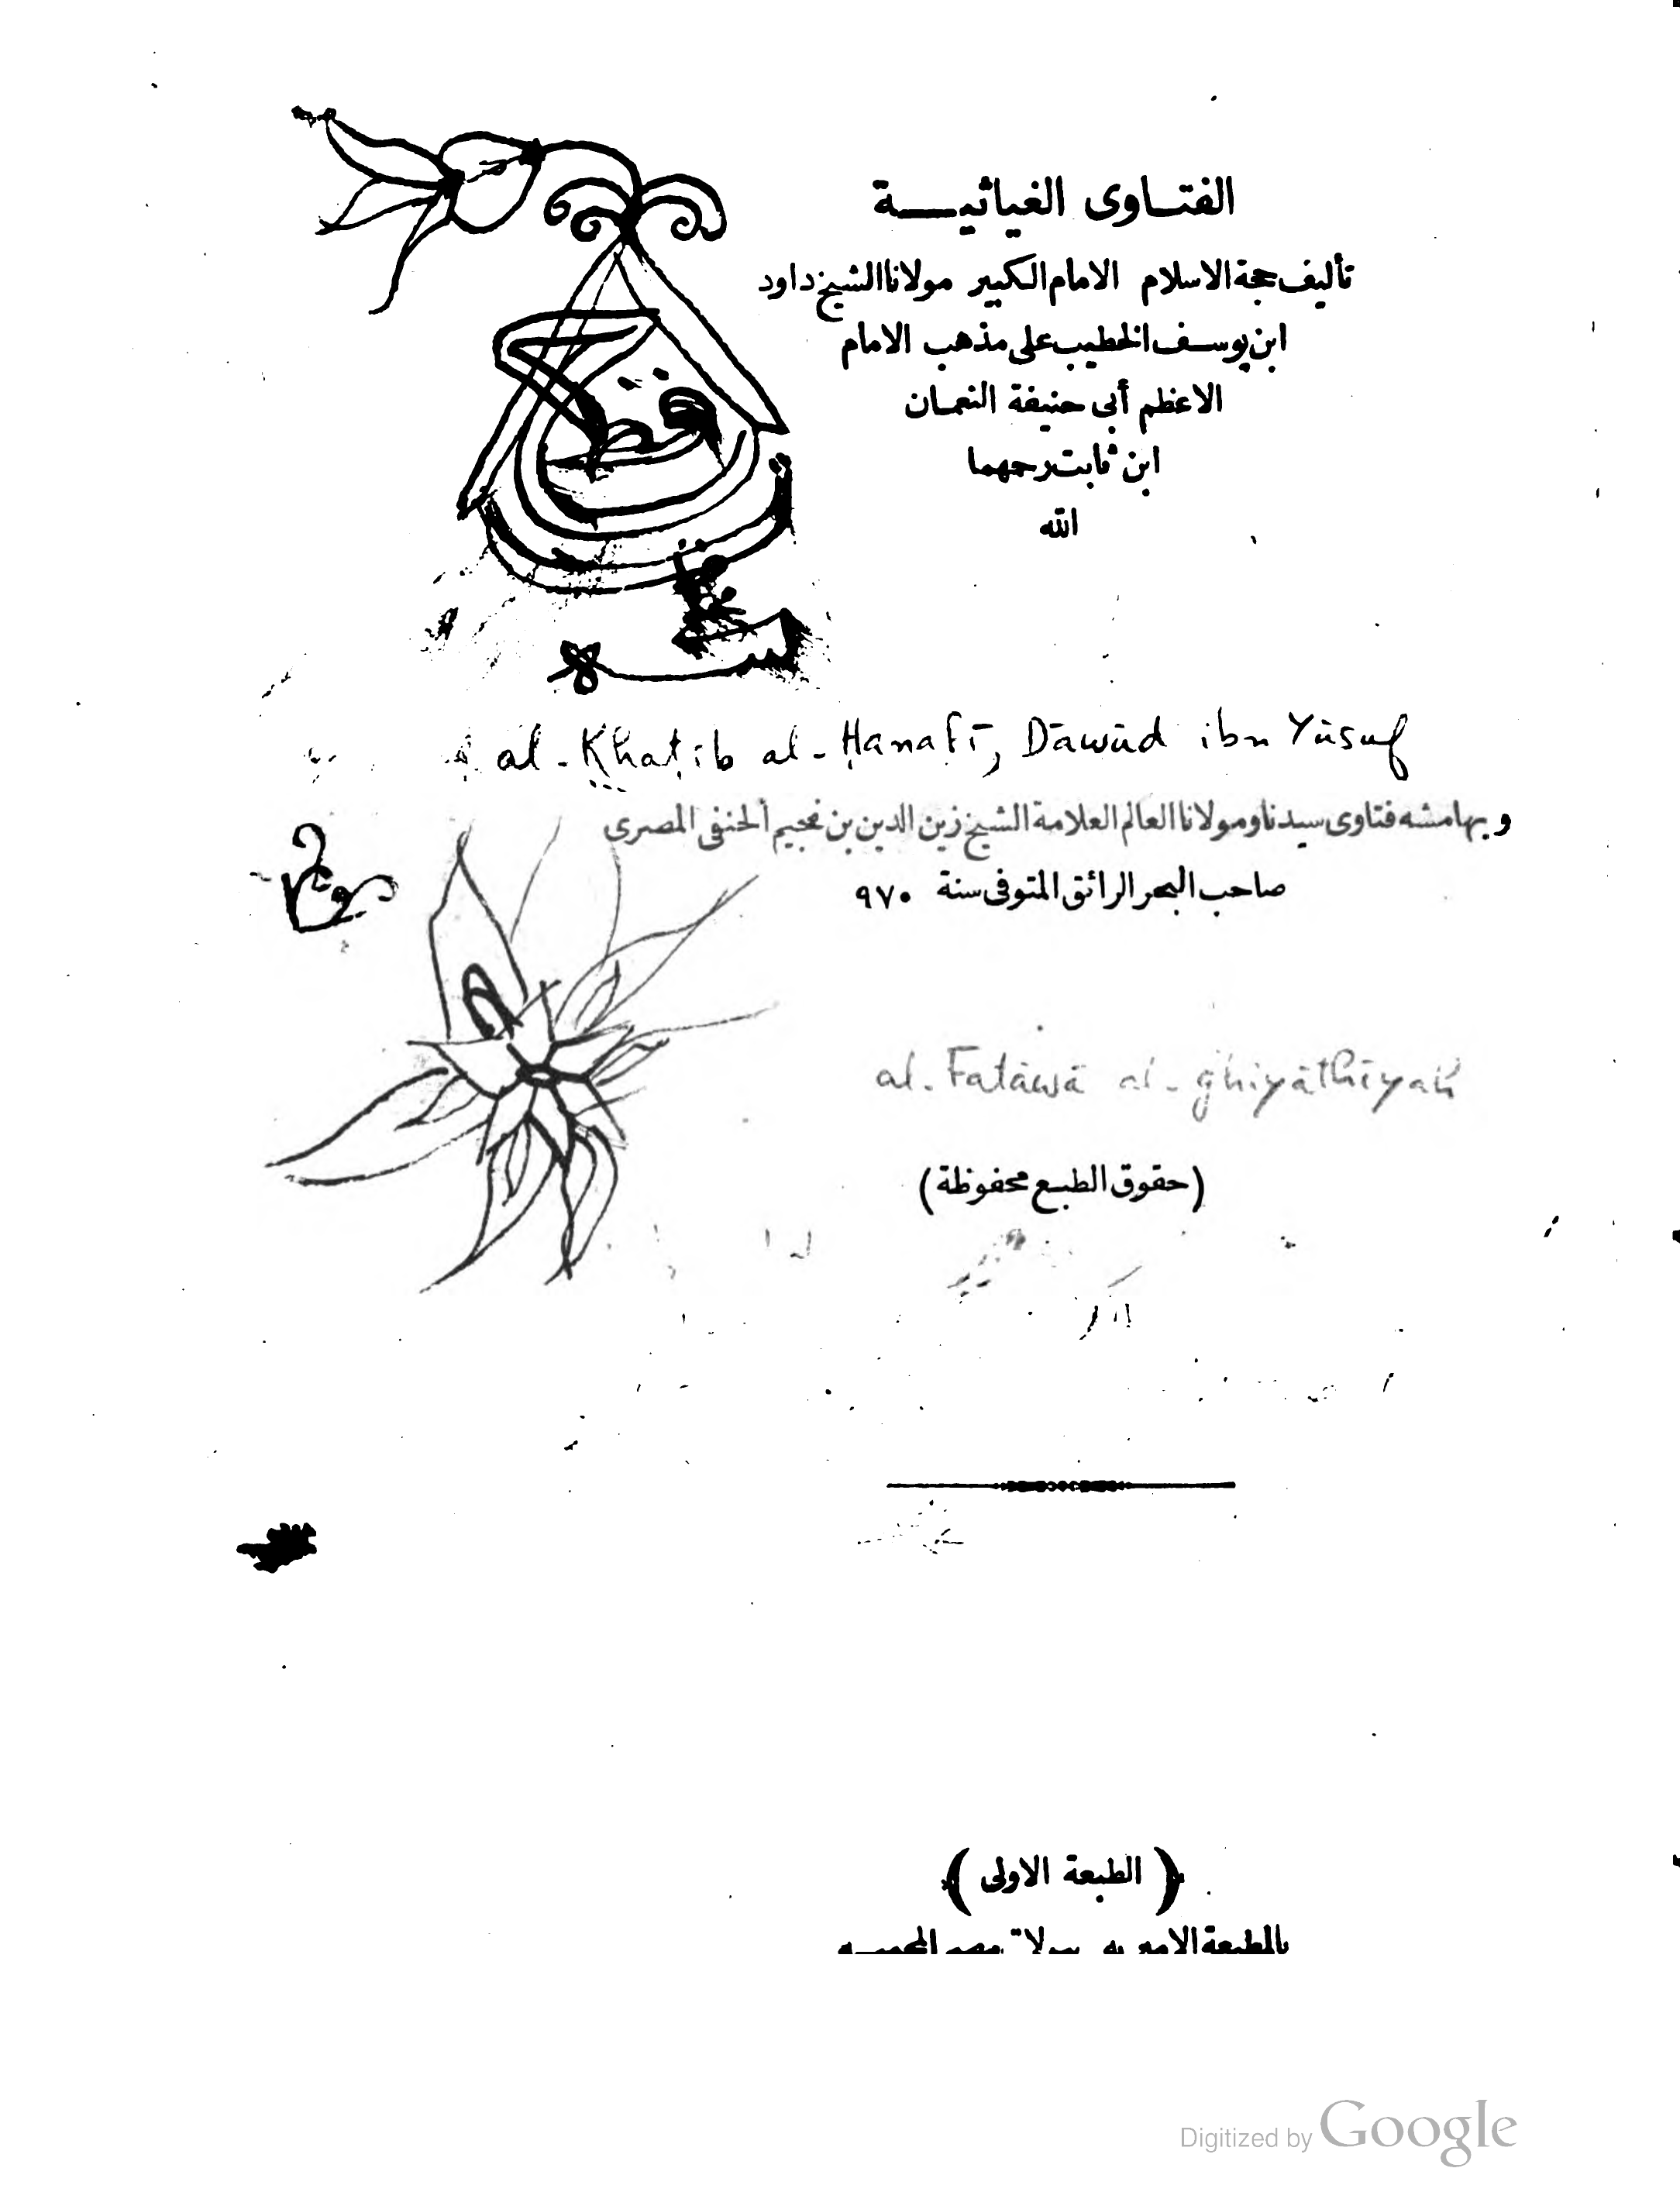 الفتاوى الغياثية
تأليف حجة الاسلام الامام الكبير مولانا الشيخ داود
ابن يوسف الخطيب على مذهب الامام
الاعظم أبى حنيفة النعمان
ابن ثابت رحمهما
الله
al-Khaṭīb al-Ḥanafī, Dāwūd ibn Yūsuf
وبهامشه فتاوى سيدنا ومولانا العالم العلامة الشيخ زين الدين بن نجيم الحنفى المصرى
صاحب البحر الرائق المتوفى سنة ٩٧٠
al-Fatāwā al-ghiyāthīyah
(حقوق الطبع محفوظة)
(الطبعة الاولى)
بالمطبعة الاميريه ببولاق مصر المحميه
Digitized by Google